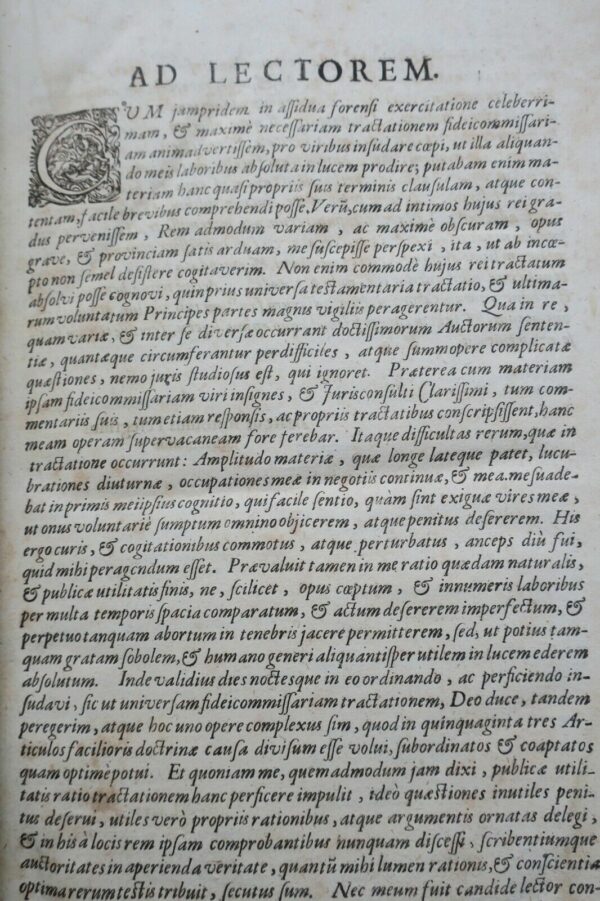 AD LECTOREM.
CUM jampridem in assidua forensi exercitatione celeberri-
mam, & maximè necessariam tractationem fideicommissari-
am animadvertissem, pro viribus insudare cœpi, ut illa aliquan-
do meis laboribus absoluta in lucem prodire; putabam enim ma-
teriam hanc quasi propriis suis terminis clausulam, atque con-
tentam, facile brevibus comprehendi posse. Verũ, cum ad intimos hujus rei gra-
dus pervenissem, Rem admodum variam, ac maximè obscuram, opus
grave, & provinciam satis arduam, me suscepisse perspexi, ita, ut ab incœ-
pto non semel desistere cogitaverim. Non enim commodè hujus rei tractatum
absolvi posse cognovi, quin prius universa testamentaria tractatio, & ultima-
rum voluntatum Principes partes magnis vigiliis peragerentur. Qua in re,
quam variæ, & inter se diversæ occurrant doctissimorum Auctorum senten-
tiæ, quantæque circumferantur perdifficiles, atque summopere complicatæ
quæstiones, nemo juris studiosus est, qui ignoret. Præterea cum materiam
ipsam fideicommissariam viri insignes, & Jurisconsulti Clarissimi, tum com-
mentariis suis, tum etiam responsis, ac propriis tractatibus conscripsissent, hanc
meam operam supervacaneam fore ferebar. Itaque difficultas rerum, quæ in
tractatione occurrunt: Amplitudo materiæ, quæ longe lateque patet, lucu-
brationes diuturnæ, occupationes meæ in negotiis continuæ, & mea. me suade-
bat in primis mei ipsius cognitio, qui facile sentio, quàm sint exiguæ vires meæ,
ut onus voluntariè sumptum omnino objicerem, atque penitus desererem. His
ergo curis, & cogitationibus commotus, atque perturbatus, anceps diù fui,
quid mihi peragendum esset. Prævaluit tamen in me ratio quædam naturalis,
& publicæ utilitatis finis, ne, scilicet, opus cœptum, & innumeris laboribus
per multa temporis spacia comparatum, & actum desererem imperfectum, &
perpetuo tanquam abortum in tenebris jacere permitterem, sed, ut potius tam-
quam gratam sobolem, & humano generi aliquantisper utilem in lucem ederem
absolutum. Inde validius dies noctesque in eo ordinando, ac perficiendo in-
sudavi, sic ut universam fideicommissariam tractationem, Deo duce, tandem
peregerim, atque hoc uno opere complexus sim, quod in quinquaginta tres Ar-
ticulos facilioris doctrinæ causa divisum esse volui, subordinatos & coaptatos
quam optimè potui. Et quoniam me, quemadmodum jam dixi, publicæ utili-
tatis ratio tractationem hanc perficere impulit, ideò quæstiones inutiles peni-
tus deserui, utiles verò propriis rationibus, atque argumentis ornatas delegi,
& in his à locis rem ipsam comprobantibus nunquam discessi, scribentiumque
auctoritates in aperienda veritate, quantũ mihi lumen rationis, & conscientia
optima rerum testis tribuit, secutus sum. Nec meum fuit candide lector con-